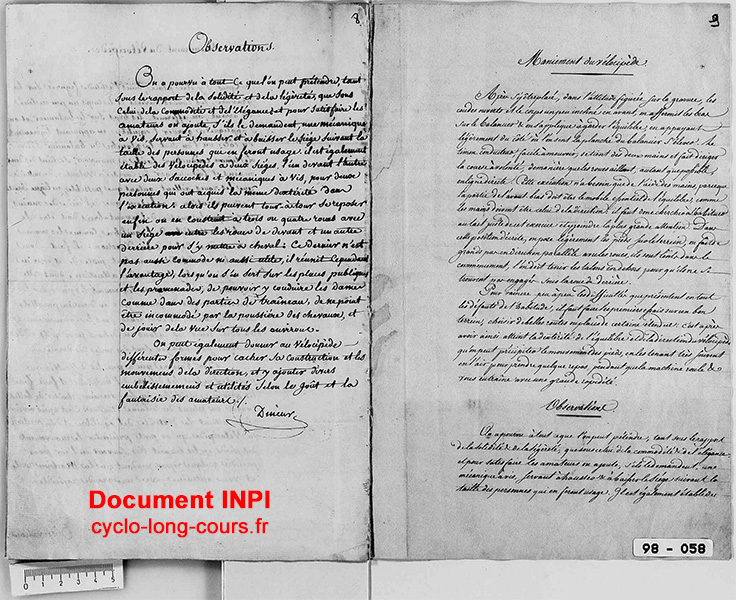 8
Observations.
On a pourvu à tout ce que l'on peut prétendre, tant
sous le rapport de la solidité et de la légèreté, que sous
celui de la commodité et de l'élégance, et pour satisfaire les
amateurs on ajoute, s'ils le demandent une mécanique
à vis, servant à hausser et à baisser le siège suivant la
taille des personnes qui en feront usage; il est également
établi des Vélocipèdes à deux Sièges, l'un devant l'autre
avec deux sacoches et mécaniques à vis, pour deux
personnes qui ont acquis la même dextérité dans
l'exécution: alors ils peuvent tour à tour se reposer
enfin on en construit à trois ou quatre roues avec
un siège entre les roues de devant et un autre
derrière pour s'y mettre à cheval: Ce dernier n'est
pas aussi commode ni aussi utile, il réunit cependant
l'avantage, lorsqu'on s'en sert sur les places publiques
et les promenades, de pouvoir y conduire les dames
comme dans des parties de traineau, de ne point
être incommodé par la poussière des chevaux, et
de jouir de la vue sur tous les environs.
On peut également donner au Vélocipède
différentes formes pour cacher sa construction et les
mouvemens de la direction, et y ajouter divers
embellissemens et utilités selon le goût et la
fantaisie des amateurs ./.
Dineur
Document INPI
cyclo-long-cours.fr
0 1 2 3 4 5
9
Maniement du vélocipède.
Après s'être placé, dans l'attitude figurée sur la gravure, les
coudes ouverts et le corps un peu penché en avant, on affermit les bras
sur le balancier & on s'applique à garder l'équilibre, en appuyant
légèrement du côté où l'on sent la planche du balancier s'élever. Le
timon conducteur facile à mouvoir, se tient des deux mains et fait diriger
la course à volonté, de manière que les roues aillent, autant que possible,
en ligne directe. Cette exécution n'a besoin que de l'aide des mains, parce que
la partie de l'avant bras doit être le mobile essentiel de l'équilibre, comme
les mains doivent être celui de la direction. il faut donc chercher à les
au tact juste de cet exercice et y joindre la plus grande attention. Dans
cette position décrite, on pose légèrement les pieds sur le terrein, on fait de
grands pas en direction parallèle avec les roues, ils sont lents dans le
commencement. On doit tenir les talons en dedans pour qu'ils ne se
trouvent pas engagés sous la roue de derrière.
Pour vaincre peu à peu les difficultés que présentent en tout
les défauts de l'habitude, il faut faire les premiers essais sur un bon
terrein, choisir de belles routes ou places de certaine étendue: c'est après
avoir ainsi atteint la dextérité de l'équilibre et de la direction du vélocipède
qu'on peut précipiter le mouvement des pieds, ou les tenant très souvent
en l'air pour prendre quelque repos, pendant que la machine roule &
vous entraîne avec une grande rapidité.
Observations
On a pourvu à tout ce que l'on peut prétendre, tant sous le rapport
de la solidité & de la légèreté, que sous celui de la commodité & de l'élégance
et pour satisfaire les amateurs on ajoute, s'ils le demandent, une
mécanique à vis, servant à hausser & à baisser le siège suivant la
taille des personnes qui en feront usage. Il est également établi des
98 - 058